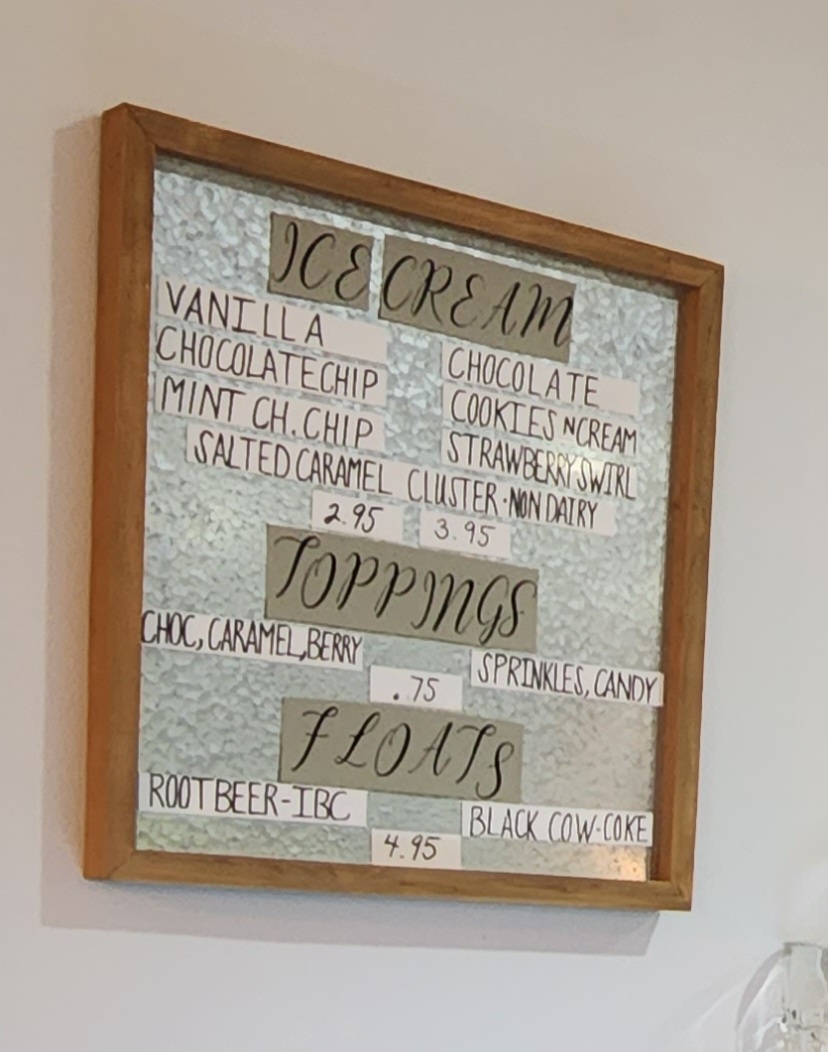 ICE CREAM
VANILLA
CHOCOLATE CHIP
MINT CH. CHIP
CHOCOLATE
COOKIES N CREAM
STRAWBERRY SWIRL
SALTED CARAMEL CLUSTER · NON DAIRY
2.95 3.95
TOPPINGS
CHOC, CARAMEL, BERRY
SPRINKLES, CANDY
.75
FLOATS
ROOTBEER-IBC
BLACK COW-COKE
4.95